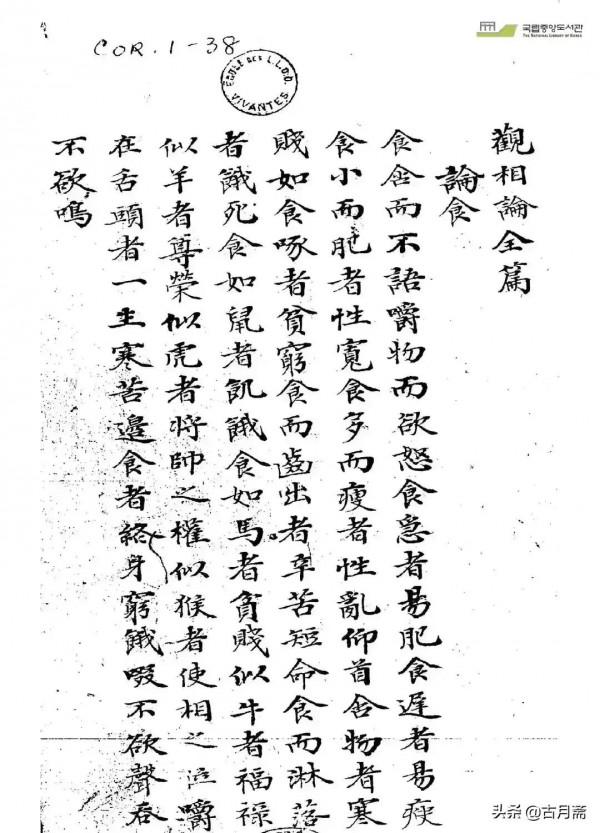 국립중앙도서관
THE NATIONAL LIBRARY OF KOREA
COR. I-38
ECOLE DES L.L.O.O. VIVANTES
觀相論全篇
論食
食舍而不語嚼物而欲怒食急者易肥食遲者易瘦
食小而肥者性寬食多而瘦者性亂仰首舍物者寒
賤如食啄者貧窮食而齒出者辛苦短命食而淋落
者餓死食如鼠者飢餓食如馬者貧賤似牛者福祿
似羊者尊榮似虎者將帥之權似猴者使相之位嚼
在舌頭者一生寒苦邊食者終身窮餓啜不欲聲吞
不欲鳴
头条 @古月斋